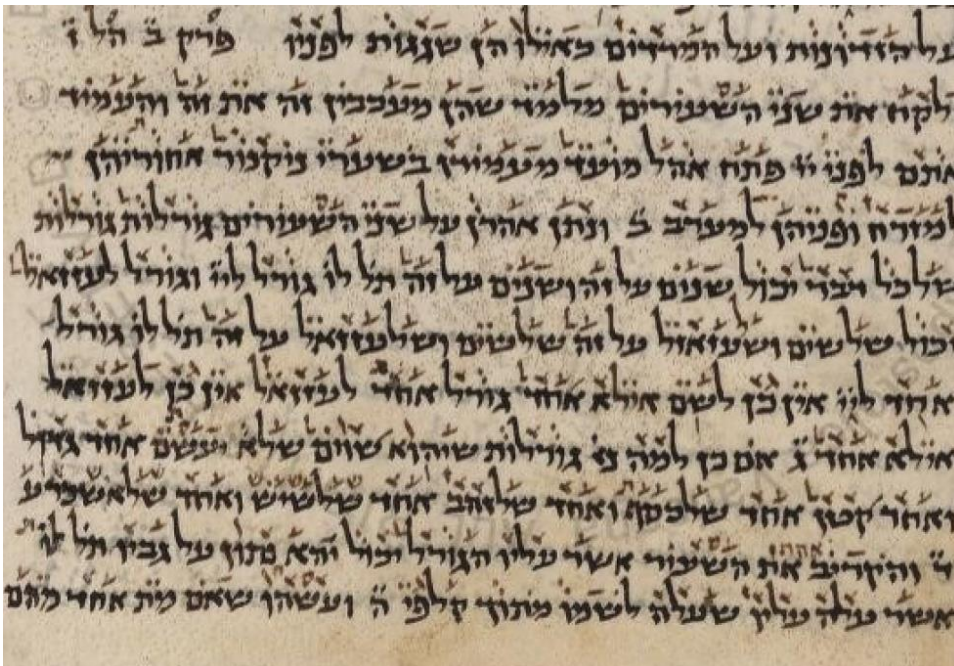 על הזדונות ועל המרדים כאילו הן שגגות לפניו פרק ב הל ז
ולקח את שני השעירים מלמד שהן מעכבין זה את זה והעמיד
אותם לפני יי פתח אהל מועד מעמידן בשערי ניקנור אחוריהן
למזרח ופניהן למערב ב ונתן אהרן על שני השעירים גורלות גורלות
שלכל דבר יכול שנים על זה ושנים על זה תל לו גורל ליי וגורל לעזזאל
יכול שלשים על זה שלשים ושלעזזאל על זה תל לו גורל
אחד ליי אין כן לשם אילא אחד גורל אחד לעזזאל אין כן לעזזאל
אילא אחד ג אם כן למה גורלות שיהוא שווים שלא יעשם אחד גדול
ואחד קטן אחד שלכסף ואחד שלזהב אחד שלשיש ואחד שלאשכרע
ד והקריב אהרן את השעיר אשר עליו הגורל יכול יהא נתון על גביו תל לו
אשר עלה עליו שעלה לשמו מתוך קלפי ה ועשהו שאם מת אחד מהם